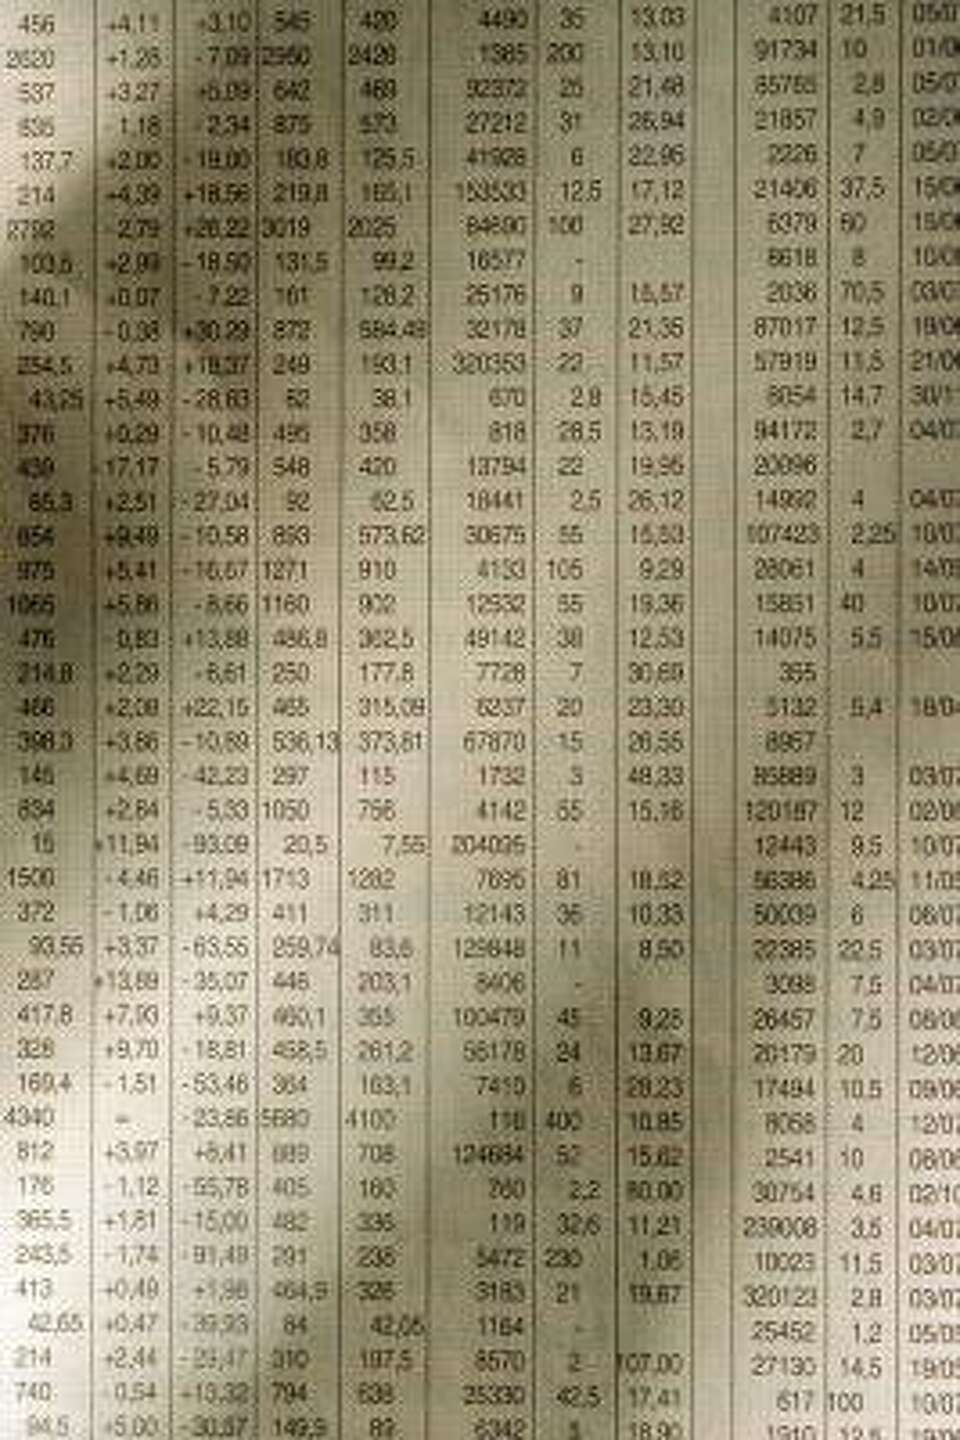 456 +4.11 +3.10 545 420 4490 35 13.03 4107 21,5
2620 +1.28 -7.09 2950 2420 1365 200 13,10 91734 10
537 +3.27 +5.09 642 469 92372 25 21,48 85765 2,8
-1.18 -2,34 875 573 27212 31 26,94 21857 4,9
137,7 +2,00 -19,00 183,8 125,5 41928 6 22,95 2226 7
214 +4,39 +18,56 219,8 165,1 153533 12,5 17,12 21406 37,5
2792 -2,79 +26.22 3019 2025 84690 100 27,92 6379 60
103,5 +2,99 -18,50 131,5 99.2 16577 - 8618 8
140,1 +0,07 -7.22 161 128,2 25176 9 15,57 2036 70,5
790 -0,38 +30.29 872 32178 37 21,35 87017 12,5
254,5 +4,73 +18,37 249 193.1 320353 22 11,57 57919 11,5
43,25 +5,49 -28,63 62 38.1 670 2,8 15,45 8054 14,7
376 +0,29 -10,48 495 358 818 28,5 13,19 94172 2,7
439 -17,17 -5,79 548 420 13794 22 19,95 20096
65,3 +2,51 -27,04 92 62,5 18441 2,5 26,12 14992 4
854 +9,49 -10,58 893 573,62 30675 55 15,53 107423 2,25
975 +5,41 -16,67 1271 910 4133 105 9,29 28061 4
1065 +5,86 -8,66 1160 902 12932 55 19,36 15851 40
476 -0,83 +13,88 486,8 362,5 49142 38 12,53 14075 5,5
214,8 +2,29 -6,61 250 177,8 7728 7 30,69 355
466 +2,08 +22,15 465 315,09 6237 20 23,30 5132 5,4
398,3 +3,86 -10,89 536,13 373,81 67870 15 26,55 8957
145 +4,69 -42,23 297 115 1732 3 48,33 85889 3
834 +2,84 -5,33 1050 756 4142 55 15,16 120187 12
15 +11,94 -93,09 20,5 7,55 204095 - 12443 9,5
1500 -4,46 +11,94 1713 1282 7695 81 18,52 56386 4,25
372 -1,06 +4,29 411 311 12143 36 10,33 50039 6
93,55 +3,37 -63,55 259,74 83,6 129848 11 8,50 22385 22,5
287 +13,89 -35,07 446 203,1 8406 - 3098 7,5
417,8 +7,93 +9,37 460,1 355 100479 45 9,25 26457 7,5
328 +9,70 -18,81 458,5 261,2 56178 24 13,67 20179 20
169,4 -1,51 -53,46 364 163,1 7410 6 28,23 17494 10,5
4340 = -23,86 5680 4100 116 400 10,85 8068 4
812 +3,97 +8,41 889 708 124684 52 15,62 2541 10
176 -1,12 -55,78 405 160 760 2,2 80,00 30754 4,6
365,5 +1,81 -15,00 482 335 119 32,6 11,21 239008 3,5
243,5 -1,74 -91,49 291 236 5472 230 1,06 10023 11,5
413 +0,49 +1,96 464,9 326 3183 21 19,67 320123 2,8
42,65 +0,47 -39,93 84 42,05 1164 - 25452 1,2
214 +2,44 -23,47 310 197,5 8570 2 107,00 27130 14,5
740 -0,54 +13,32 794 638 25330 42,5 17,41 617 100
94,5 +5,00 -30,67 149,9 89 6342 18,90 1910 12,5